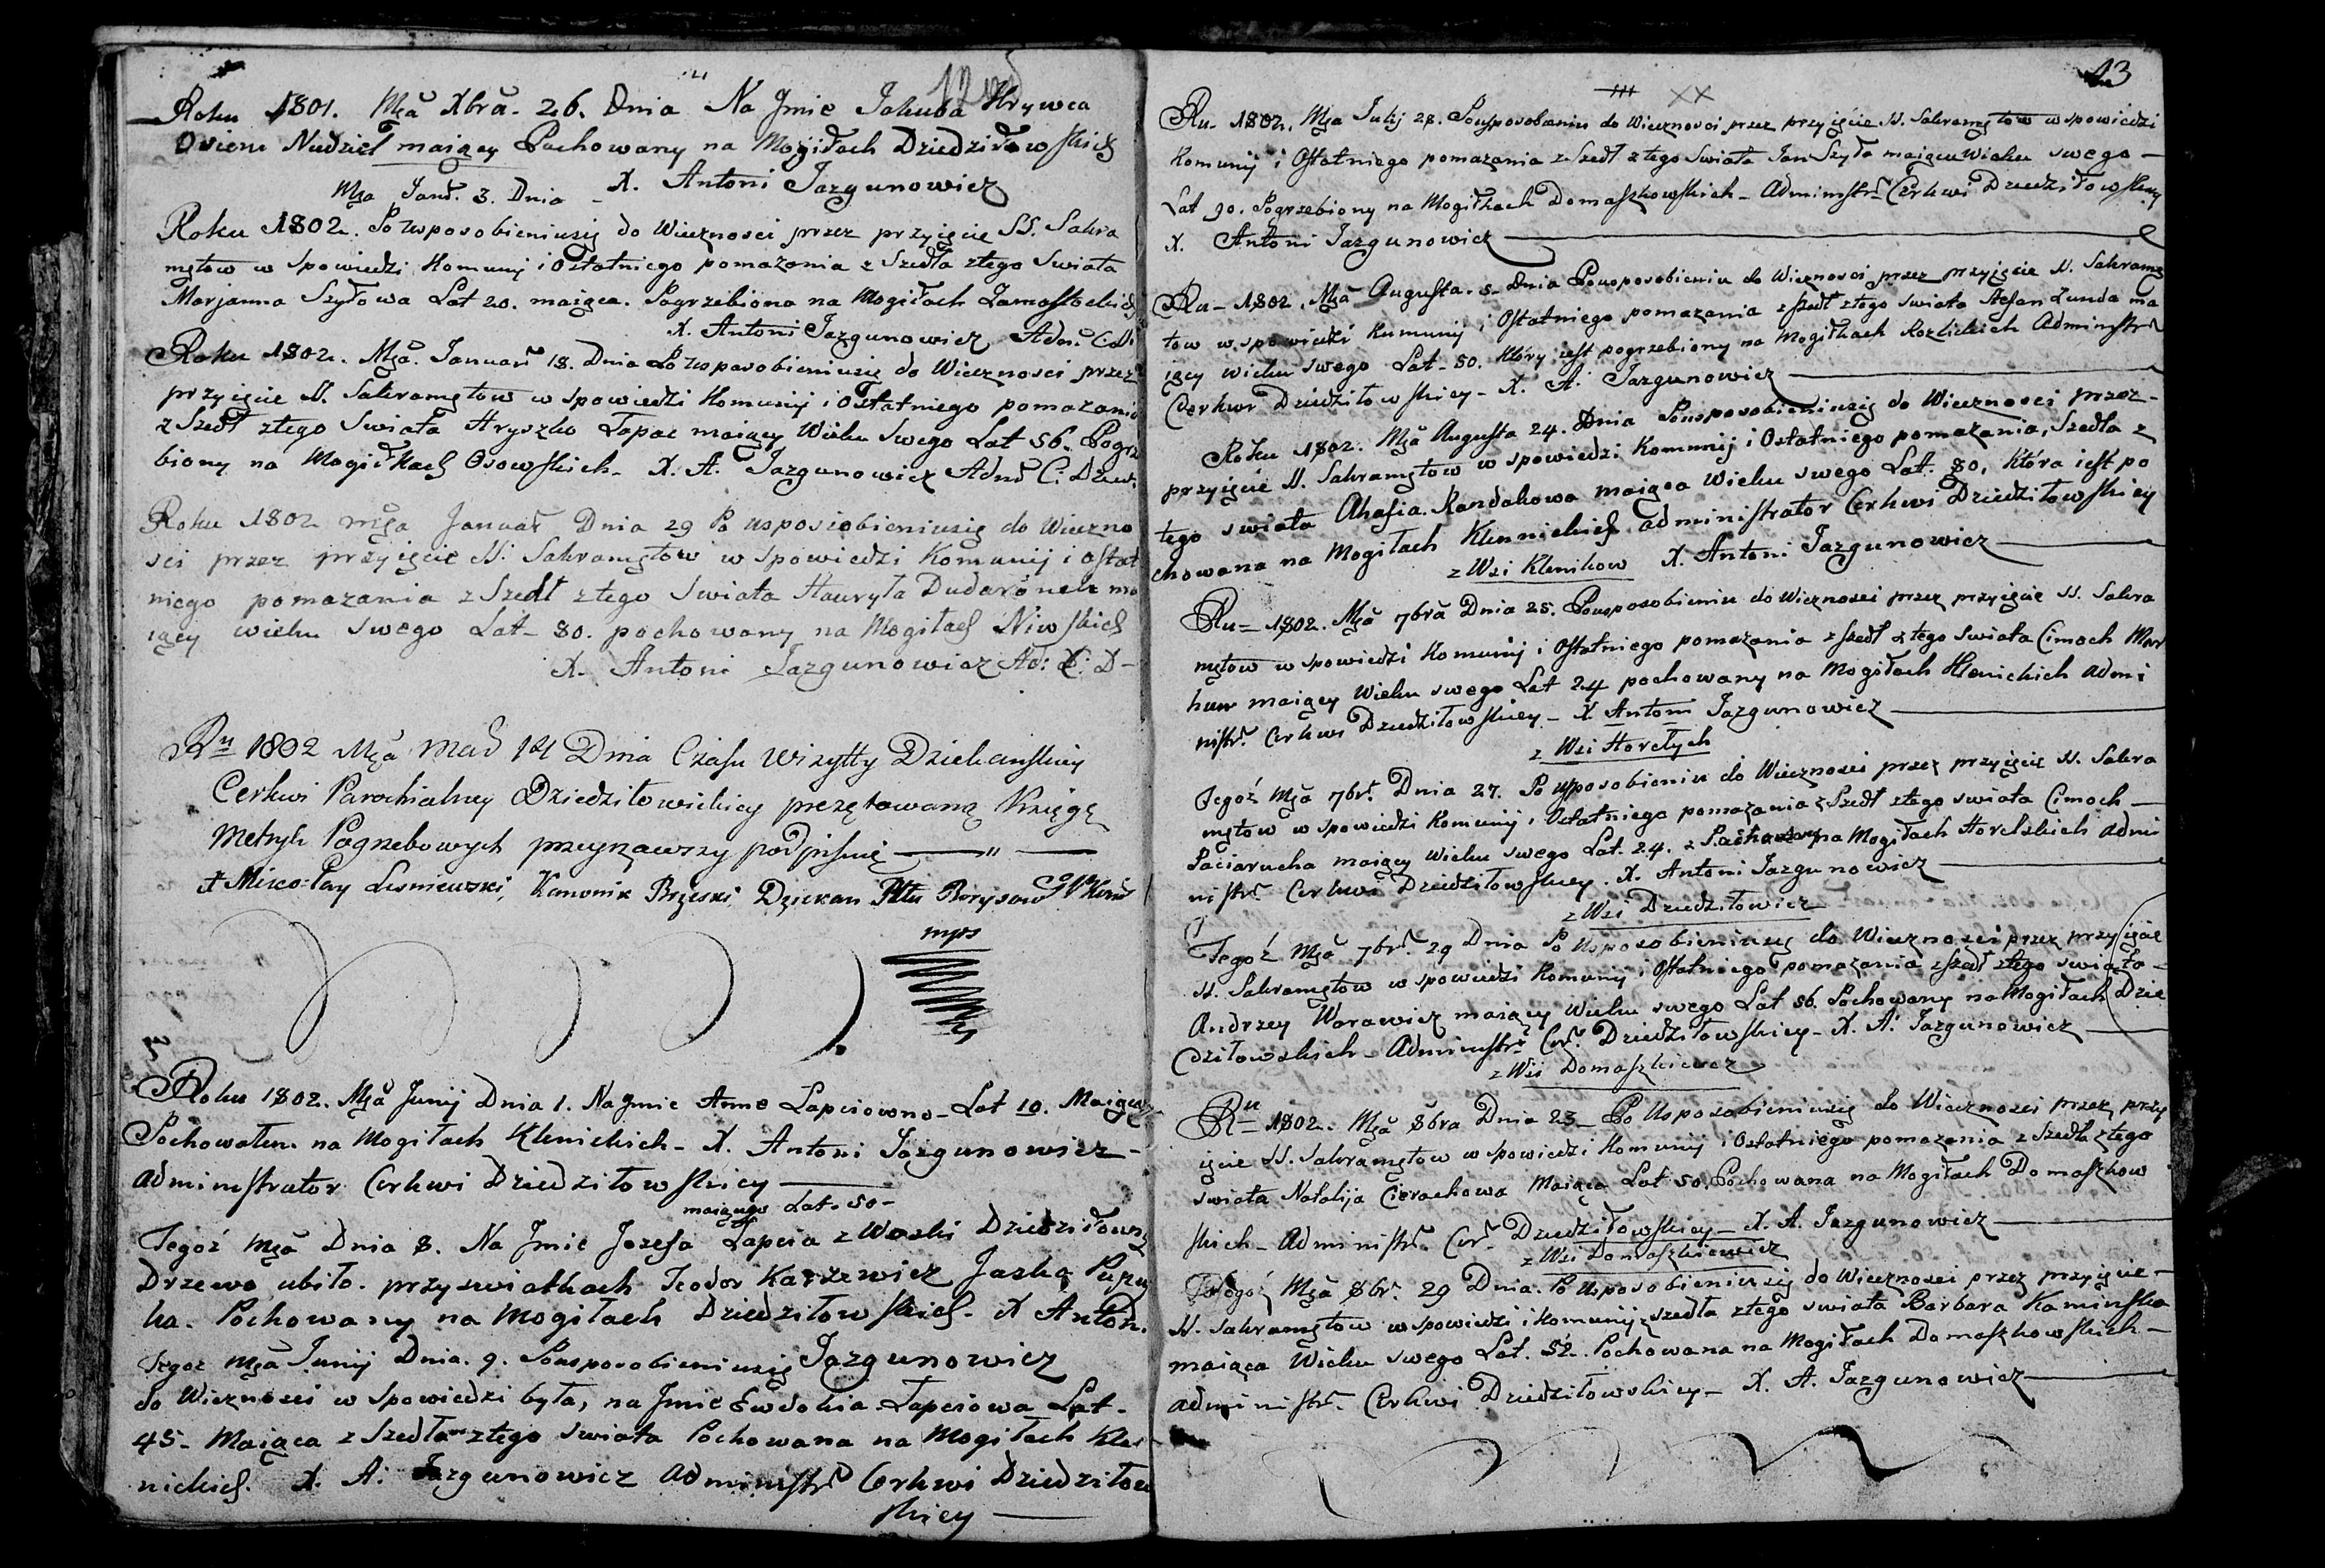 12 od
Roku 1801. Mca Xbra. 26. Dnia Na Jmie Jakuba Hrywca
Osiem Nudziel maiący Pochowany na Mogiłach Dziedziłowskich
X. Antoni Jazgunowicz
Mca Janr. 3. Dnia
Roku 1802. Po Usposobieniusię do Wieczności przez przyięcie SS. Sakra
mętow w Spowiedzi Komunij i Ostatniego pomazania z Szedła ztego Swiata
Marjanna Szyłowa Lat 20. maiąca. Pogrzebiona na Mogiłach Zamostockich
X. Antoni Jazgunowicz Adm. C. D.
Roku 1802. Mca. Januar 18. Dnia Po Usposobieniusię do Wieczności przez
przyięcie SS. Sakramętow w Spowiedzi Komunij i Ostatniego pomazania
z Szedł ztego Swiata Hryszko Łapac maiący Wieku Swego Lat 56. Pogrz
biony na Mogiłkach Osowskich - X. A. Jazgunowicz Adm C: Dziw.
Roku 1802 mca Januar Dnia 29 Po usposiobieniusię do Wieczno
sci przez przyięcie SS. Sakramętow w Spowiedzi Komunij i ostat
niego pomazania z Szedł ztego Swiata Hauryła Dudaronek ma
iący wieku Swego Lat - 80. pochowany na Mogiłach Niwskich
X. Antoni Jazgunowicz Ad: C: D -
Ru 1802 Mca Maÿ 14 Dnia Czasu Wizytty Dziekanskiey
Cerkwi Parochialney Dziedziłowickiey prezętowaną Xięgę
Metryk Pogrzebowych przeyzawszy podpisuię — " —
X Mikołay Lesniewski, Kanonik Brzeski Dziekan Pttu Borysow
mps
Roku 1802. Mca Junij Dnia 1. Na Jmie Anne Lapciowno - Lat 10. Maiącą
Pochowałem na Mogiłach Klenickich - X. Antoni Jazgunowicz -
administrator Cerkwi Dziedziłowskiey —
maiącego Lat - 50 -
Tegoż Mca Dnia 8. Na Jmie Jozefa Łapcia z Woski Dziedziłowicz
Drzewo ubiło. przyswiatkach Teodor Karzewicz Jaska Pupu
ka. Pochowany na Mogiłach Dziedziłowskich - X Anton.
Tegoż Mca Junij Dnia. 9. Pousposobieniusię Jazgunowicz
do Wieczności w Spowiedzi była, na Jmie Ewdokia Łapciowa Lat -
45 - Maiąca z Szedła ztego Swiata Pochowana na Mogiłach Kle
nickich. X. A. Jazgunowicz Administr Cerkwi Dziedziłow
skiey —
13
Ru - 1802. Mca Julij 28. Pousposobieniu do Wieczności przez przyięcie SS. Sakramętow w spowiedzi
Komunij i Ostatniego pomazania z Szedł z tego Swiata Jan Szyło maiącu Wieku swego -
Lat 90. Pogrzebiony na Mogiłkach Domaszkowskich - Administr - Cerkwi Dziedziłowskiey
X. Antoni Jazgunowicz —
Ru - 1802. Mca Augusta. 5. Dnia Pousposobieniu do Wieczności przez przyięcie SS. Sakramę
tow w spowiedzi Kumunij i Ostatniego pomazania z szedł ztego swiata Stefan Zunda ma
iący wieku swego Lat - 50. który iest pogrzebiony na Mogiłkach Kozlickich Administr
Cerkwi Dziedziłowskiey - X. A. Jazgunowicz —
Roku 1802. Mca Augusta 24. Dnia Pousposobieniusię do Wieczności przez -
przyięcie SS. Sakramętow w spowiedzi Komunij i Ostatniego pomazania, Szedła z
tego swiata Ahafia Kandakowa maiąca Wieku swego Lat. 80, która iest po
chowana na Mogiłach Klennickich administrator Cerkwi Dziedziłowskiey
z Wsi Klenikow X. Antoni Jazgunowicz —
Ru = 1802. Mca 7bra Dnia 25. Pousposobieniu do Wieczności przez przyięcie SS. Sakra
mętow w spowiedzi Komunij i Ostatniego pomazania z szedł z tego swiata Cimoch Mar
kuw maiący Wieku swego Lat 24 pochowany na Mogiłach Klenickich admi
nistr. Cerkwi Dziedziłowskiey - X Antoni Jazgunowicz —
z Wsi Horełych
Tegoż Mca 7br. Dnia 27. Po usposobieniu do Wieczności przez przyięcie SS. Sakra
mętow w Spowiedzi Komunij i Ostatniego pomazania z Szedł ztego swiata Cimoch —
Paciarucha maiący Wieku swego Lat. 24. z Pachowany na Mogiłach Horelskich admi
nistr. Cerkwi Dziedziłowskiey. X. Antoni Jazgunowicz —
z Wsi Dziedziłowicz
Tegoż Mca 7br. 29 Dnia Po Usposobieniusię do Wieczności przez przyięcie
SS. Sakramętow w spowiedzi Komunij i Ostatniego pomazania z szedł ztego swiata -
Andrzey Warawicz maiący Wieku swego Lat 56. Pochowany na Mogiłach Dzie
dziłowskich - Administr. Cer. Dziedziłowskiey - X. A. Jazgunowicz —
z Wsi Domaszkiewicz
Ru 1802. Mca 8bra Dnia 23 - Po Usposobieniusię do Wieczności przez przy
ięcie SS. Sakramętow w Spowiedzi Komunij i Ostatniego pomazania z Szedła ztego
swiata Natalija Cierachowa Maiąca Lat 50. Pochowana na Mogiłach Domaszkow
skich - Administr. Cer. Dziedziłowskiey - X. A. Jazgunowicz —
z Wsi Domaszkiewicz
Togoż Mca 8br. 29 Dnia. Po Usposobieniusię do Wieczności przez przyięcie -
SS. sakramętow w spowiedzi i komunij z szedła ztego swiata Barbara Kaminska
maiąca Wieku swego Lat. 52. Pochowana na Mogiłach Domaszkowskich -
administr. Cerkwi Dziedziłowskiey - X. A. Jazgunowicz —